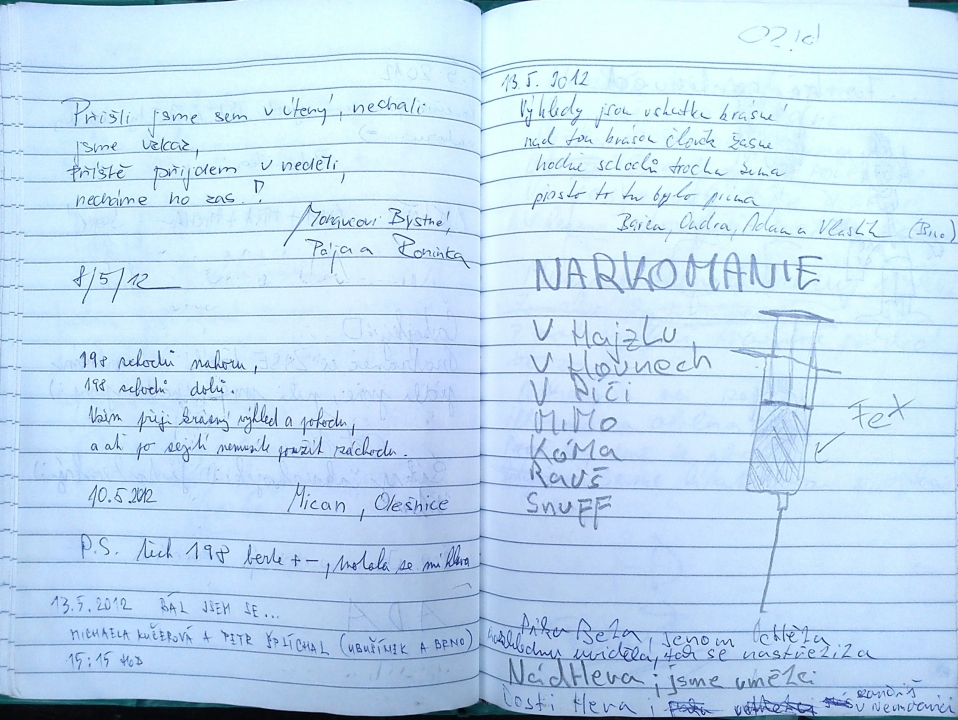 Přišli jsme sem v úterý, nechali
jsme vzkaz,
příště přijdem v neděli,
necháme ho zas!
Bystré,
Pája a Rominka
8/5/12
198 schodů nahoru,
198 schodů dolů.
Vám přeji krásný výhled a pohodu,
a ať po sejití nemusíte použít záchodu.
10.5.2012 Mican, Olešnice
P.S. těch 198 berte +-, motala se mi hlava
13.5.2012 BÁL JSEM SE...
MICHAELA KUČEROVÁ A PETR ŠPLÍCHAL (UBUŠÍNEK A BRNO)
15:15 HOD
13.5. 2012
Výhledy jsou vskutku krásné
nad tou krásou člověk žasne
hodně schodů trocha zima
prostě to tu bylo prima
Ondra, Adam a Vlastík (Brno)
NARKOMANIE
V Hajzlu
V Hovnech
V Piči
MiMo
KóMa
Rauš
Snuff
Fet
jenom
uviděla, tak se nastřelila
Nádhera, jsme umělci
Dosti